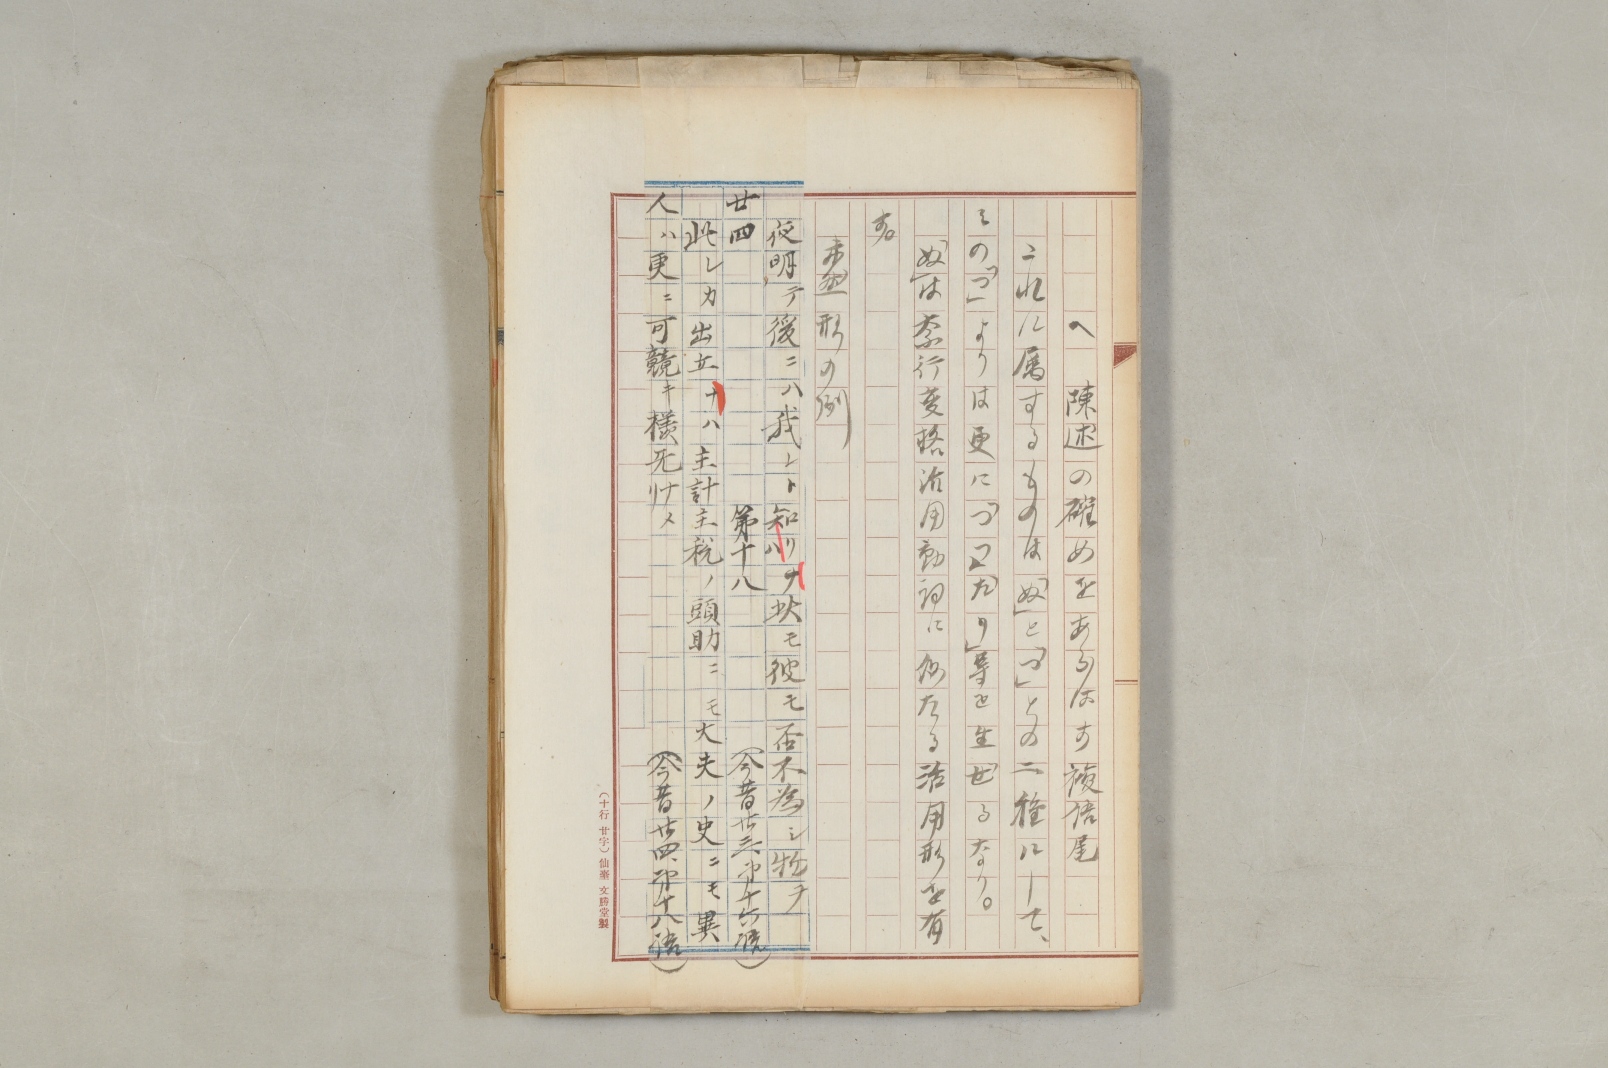 へ 陳述の確めをあらはす複語尾
これに属するものは「ぬ」と「つ」との二種にして、
その「つ」よりは更に「つゝ」「たり」等を生ぜるなり。
「ぬ」は奈行変格活用動詞に似たる活用形を有
す。
未然形の例
夜明テ後ニハ我レト知リナハ此モ彼モ否不為ジ物ヲ
(今昔廿三、第十六語)
廿四 第十八
此レカ出立ナハ主計主税ノ頭助ニモ大夫ノ史ニモ異
人ハ更ニ可競キ様无リナメ
(今昔廿四、第十八語)
(十行 廿字) 仙臺 文勝堂製